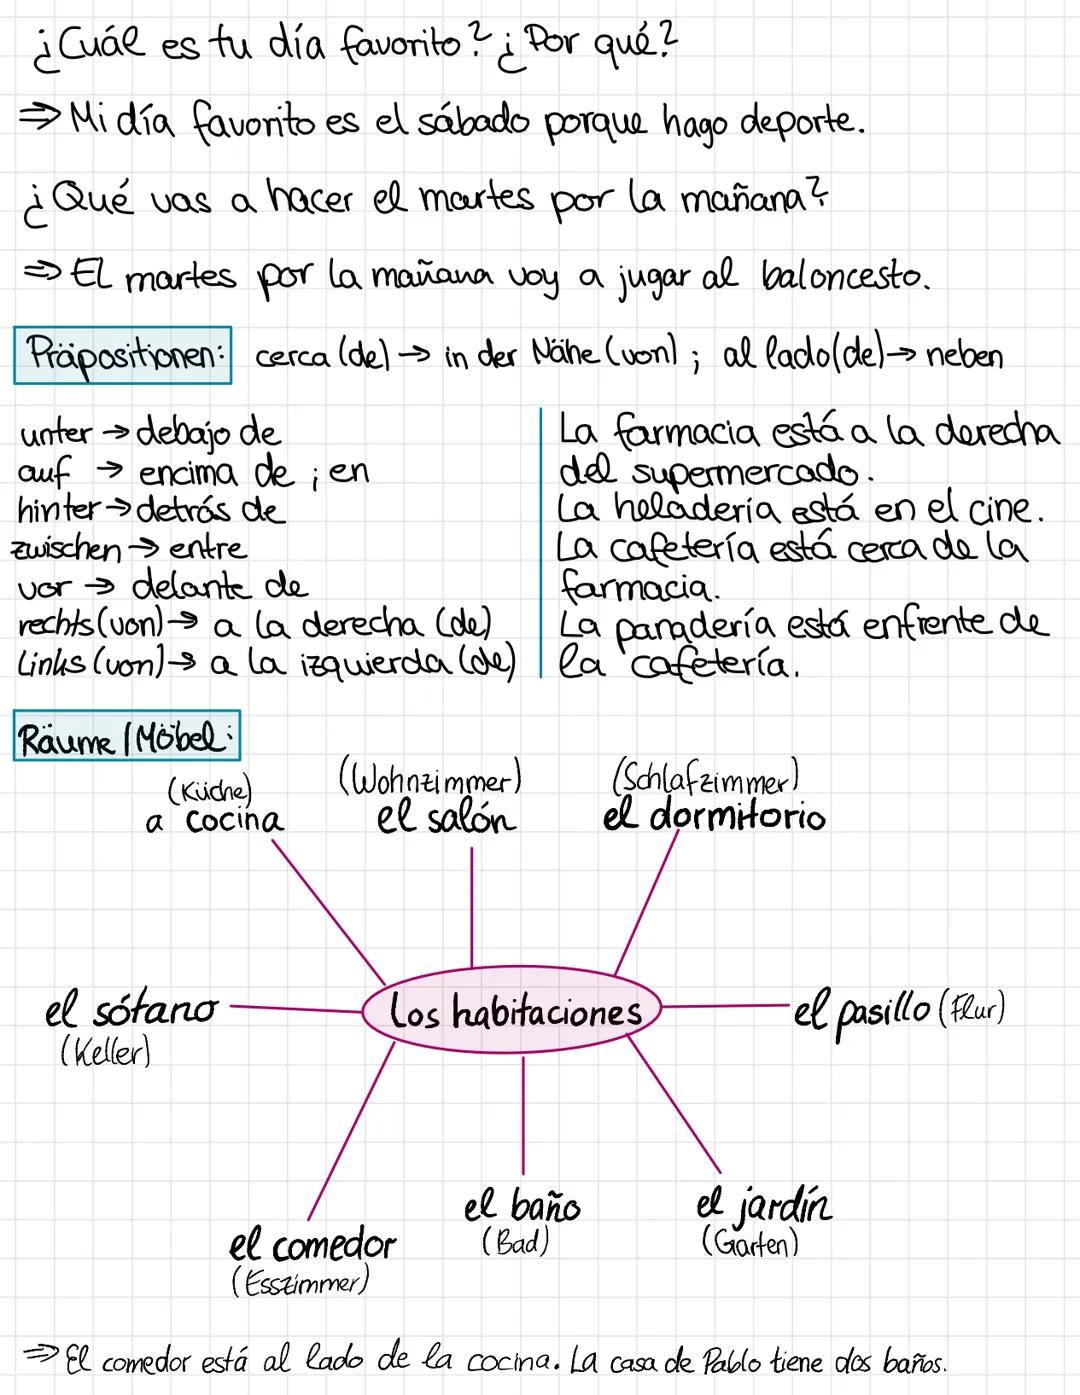 ¿Cuál es tu día favorito? ¿Por qué?
⇒ Mi día favorito es el sábado porque hago deporte.
¿Qué vas a hacer el martes por la mañana?
⇒ El martes por la mañana voy a jugar al baloncesto.
Präpositionen: cerca (de) → in der Nähe (von) ; al lado (de) → neben
unter → debajo de
auf → encima de ; en
hinter → detrás de
zwischen → entre
vor → delante de
rechts (von) → a la derecha (de)
links (von) → a la izquierda (de)
La farmacia está a la derecha
del supermercado.
La heladería está en el cine.
La cafetería está cerca de la
farmacia.
La panadería está enfrente de
la cafetería.
Räume / Möbel:
(Küche)
a cocina
(Wohnzimmer)
el salón
(Schlafzimmer)
el dormitorio
el sótano
(Keller)
Los habitaciones
el pasillo (Flur)
el comedor
(Esszimmer)
el baño
(Bad)
el jardín
(Garten)
⇒ El comedor está al lado de la cocina. La casa de Pablo tiene dos baños.